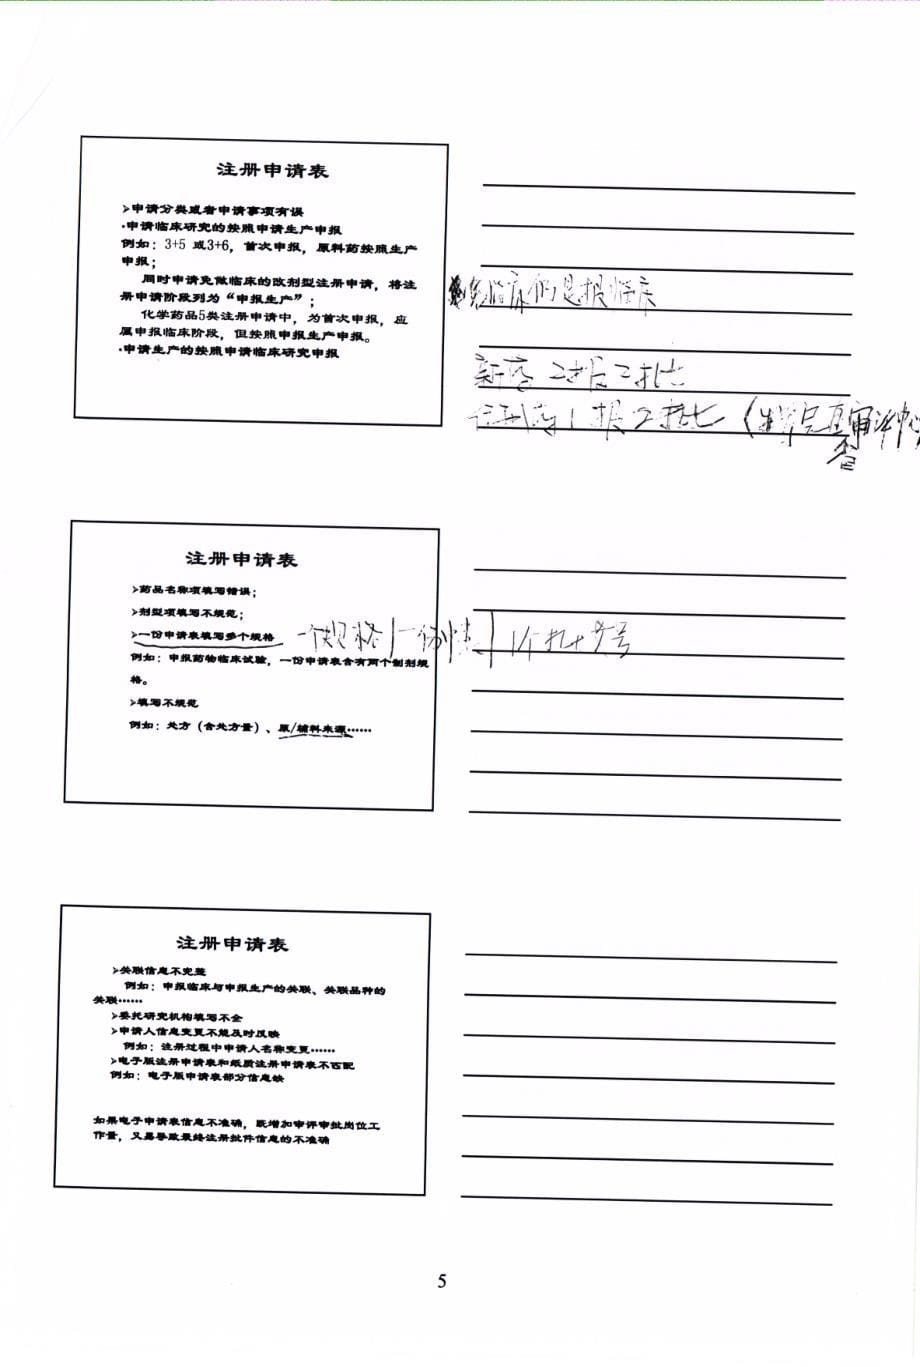 注册申请表
➢申请分类或者申请事项有误
·申请临床研究的按照申请生产申报
例如：3+5 或3+6，首次申报，原料药按照生产
申报；
同时申请免做临床的改剂型注册申请，将注
册申请阶段列为“申报生产”；
化学药品5类注册申请中，为首次申报，应
属申报临床阶段，但按照申报生产申报。
·申请生产的按照申请临床研究申报
免临床的是报临床
新药 2报2批
1报2批
注册申请表
➢药品名称项填写错误；
➢剂型项填写不规范；
➢一份申请表填写多个规格 一个规格 一份 1个批
例如：申报药物临床试验，一份申请表含有两个制剂规
格。
➢填写不规范
例如：处方（含处方量）、原/辅料来源……
注册申请表
➢关联信息不完整
例如：申报临床与申报生产的关联、关联品种的
关联……
➢委托研究机构填写不全
➢申请人信息变更不能及时反映
例如：注册过程中申请人名称变更……
➢电子版注册申请表和纸质注册申请表不匹配
例如：电子版申请表部分信息缺
如果电子申请表信息不准确，既增加审评审批岗位工
作量，又易导致最终注册批件信息的不准确
5